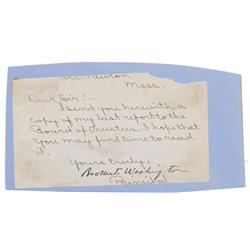 Mass.
Dear Sir:-
I send you herewith a
copy of my last report to the
Board of Trustees. I hope that
you may find time to read
it.
Yours truly,
Booker T. Washington
Principal